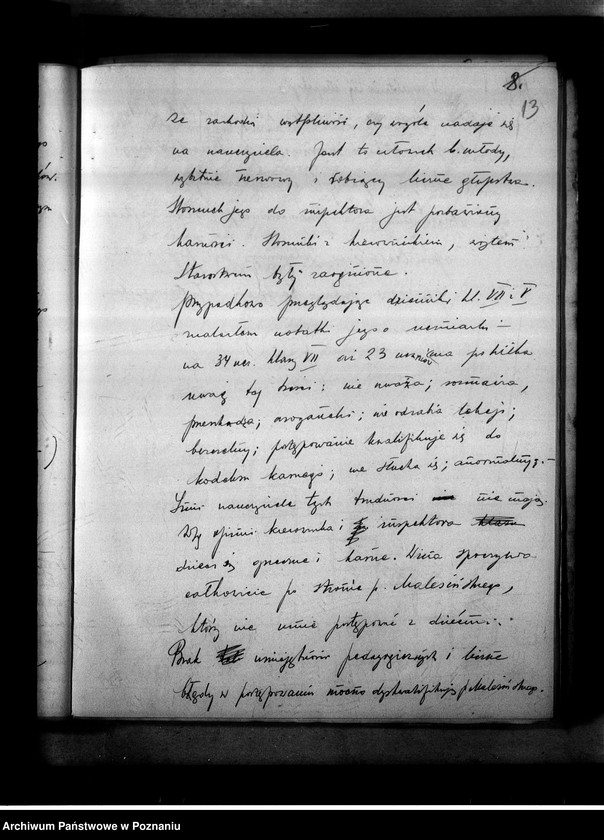 8.
13
że zachodzi wątpliwość, czy wogóle nadaje się
na nauczyciela. Jest to człowiek b. młody,
nerwowy i robiący liczne głupstwa.
Stosunek jego do inspektora jest pozbawiony
karności. Stosunki z kierownikiem, względnie
Starostwem były zaognione.
Przypadkowo przeglądając dzienniki kl. VII i V
znalazłem notatki jego o uczniach –
na 34 ucz. klasy VII aż 23 uczniów ma po kilka
uwag tej treści: nie uważa; rozmawia,
przeszkadza; arogancki; nie odrabia lekcji;
bezczelny; postępowanie kwalifikuje się do
kodeksu karnego; nie słucha się; anormalny. –
Inni nauczyciele tych trudności nie mają.
Wg opinii kierownika i inspektora
dzieci są grzeczne i karne. Wina spoczywa
całkowicie po stronie p. Malesińskiego,
który nie umie postępować z dziećmi.
Brak umiejętności pedagogicznych i liczne
błędy w postępowaniu mocno dyskwalifikują p. Malesińskiego.
Archiwum Państwowe w Poznaniu